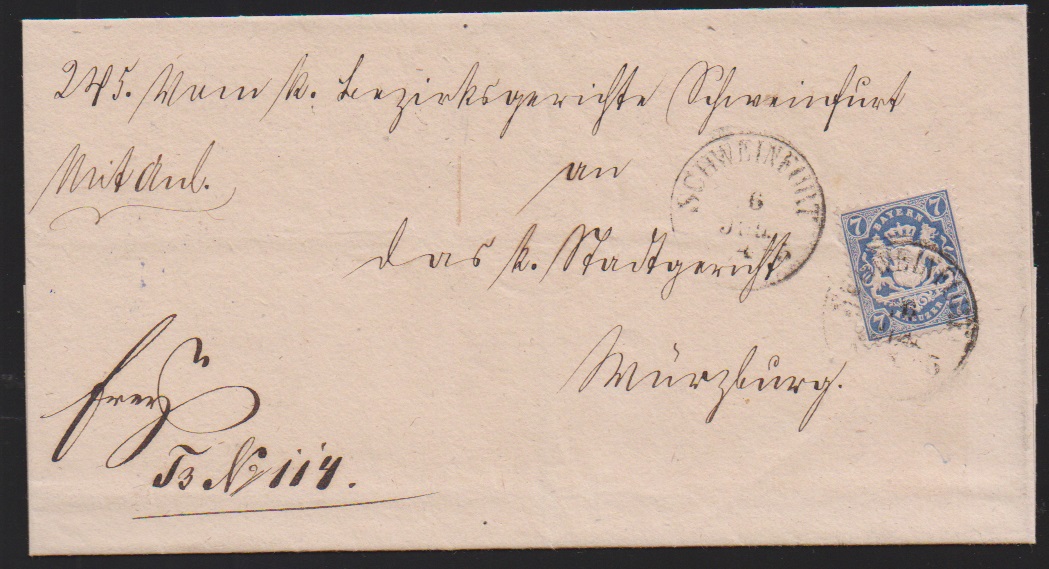 245. Vom k. Bezirksgerichte Schweinfurt
Mit Anl.
an
das k. Stadtgericht
Würzburg.
frei
T3 No 114.
SCHWEINFURT
6
7 BAYERN 7
7 KREUZER 7
6